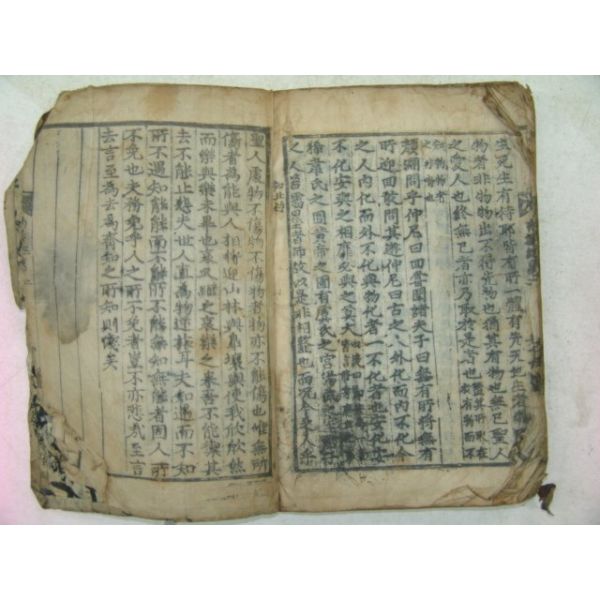 死生有待耶皆有所一體有先天地生者物
物者非物物出不得先物也猶其有物也無已聖人
之愛人也終無已者亦乃取於是者也
顔淵問乎仲尼曰回嘗聞諸夫子曰無有所將無有
所迎回敢問其遊仲尼曰古之人外化而內不化今
之人內化而外不化與物化者一不化者也安化安
不化安與之相靡必與之莫多
韋氏之囿黃帝之圃有虞氏之宮湯武之室君子
之人若儒墨者師故以是非相也而況今之人乎
聖人處物不傷物不傷物者物亦不能傷也唯無所
傷者為能與人相將迎山林與皐壤與使我欣欣然
而樂與樂未畢也哀又繼之哀樂之來吾不能禦其
去不能止悲夫世人直為物逆旅耳夫知遇而不知
所不遇知能能而不能所不能無知無能者固人所
不免也夫務免乎人之所不免者豈不亦悲哉至言
去言至為去為齊知之所知則淺矣